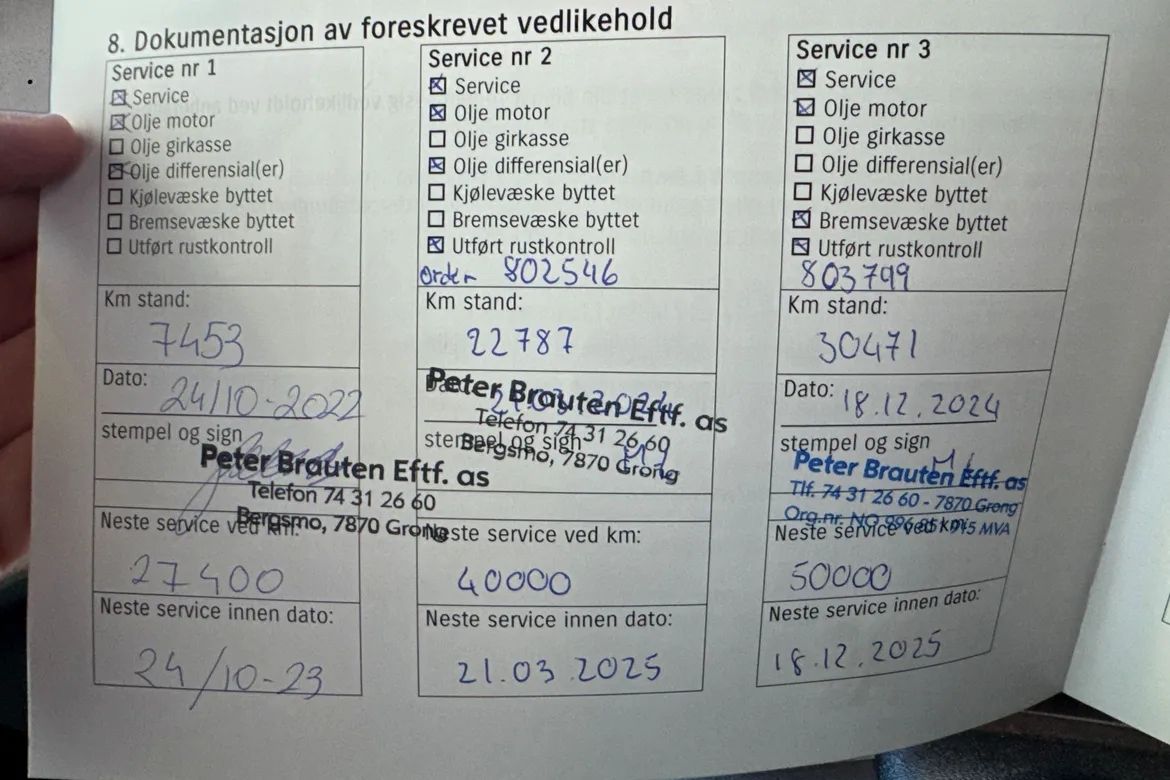 8. Dokumentasjon av foreskrevet vedlikehold
Service nr 1
☒ Service
☒ Olje motor
☐ Olje girkasse
☒ Olje differensial(er)
☐ Kjølevæske byttet
☐ Bremsevæske byttet
☐ Utført rustkontroll
Km stand:
7453
Dato: 24/10-2022
stempel og sign
Peter Brauten Eftf. as
Telefon 74 31 26 60
Bergsmo, 7870 Grong
Neste service ved km:
27400
Neste service innen dato:
24/10-23
Service nr 2
☒ Service
☒ Olje motor
☐ Olje girkasse
☒ Olje differensial(er)
☐ Kjølevæske byttet
☐ Bremsevæske byttet
☒ Utført rustkontroll
Order 802546
Km stand:
22787
Peter Brauten Eftf. as
Telefon 74 31 26 60
stempel og sign
Bergsmo, 7870 Grong
Neste service ved km:
40000
Neste service innen dato:
21.03.2025
Service nr 3
☒ Service
☒ Olje motor
☐ Olje girkasse
☐ Olje differensial(er)
☐ Kjølevæske byttet
☒ Bremsevæske byttet
☒ Utført rustkontroll
803799
Km stand:
30471
Dato: 18.12.2024
stempel og sign
Peter Brauten Eftf. as
Tlf. 74 31 26 60 - 7870 Grong
Org.nr. NO MVA
Neste service ved km:
50000
Neste service innen dato:
18.12.2025